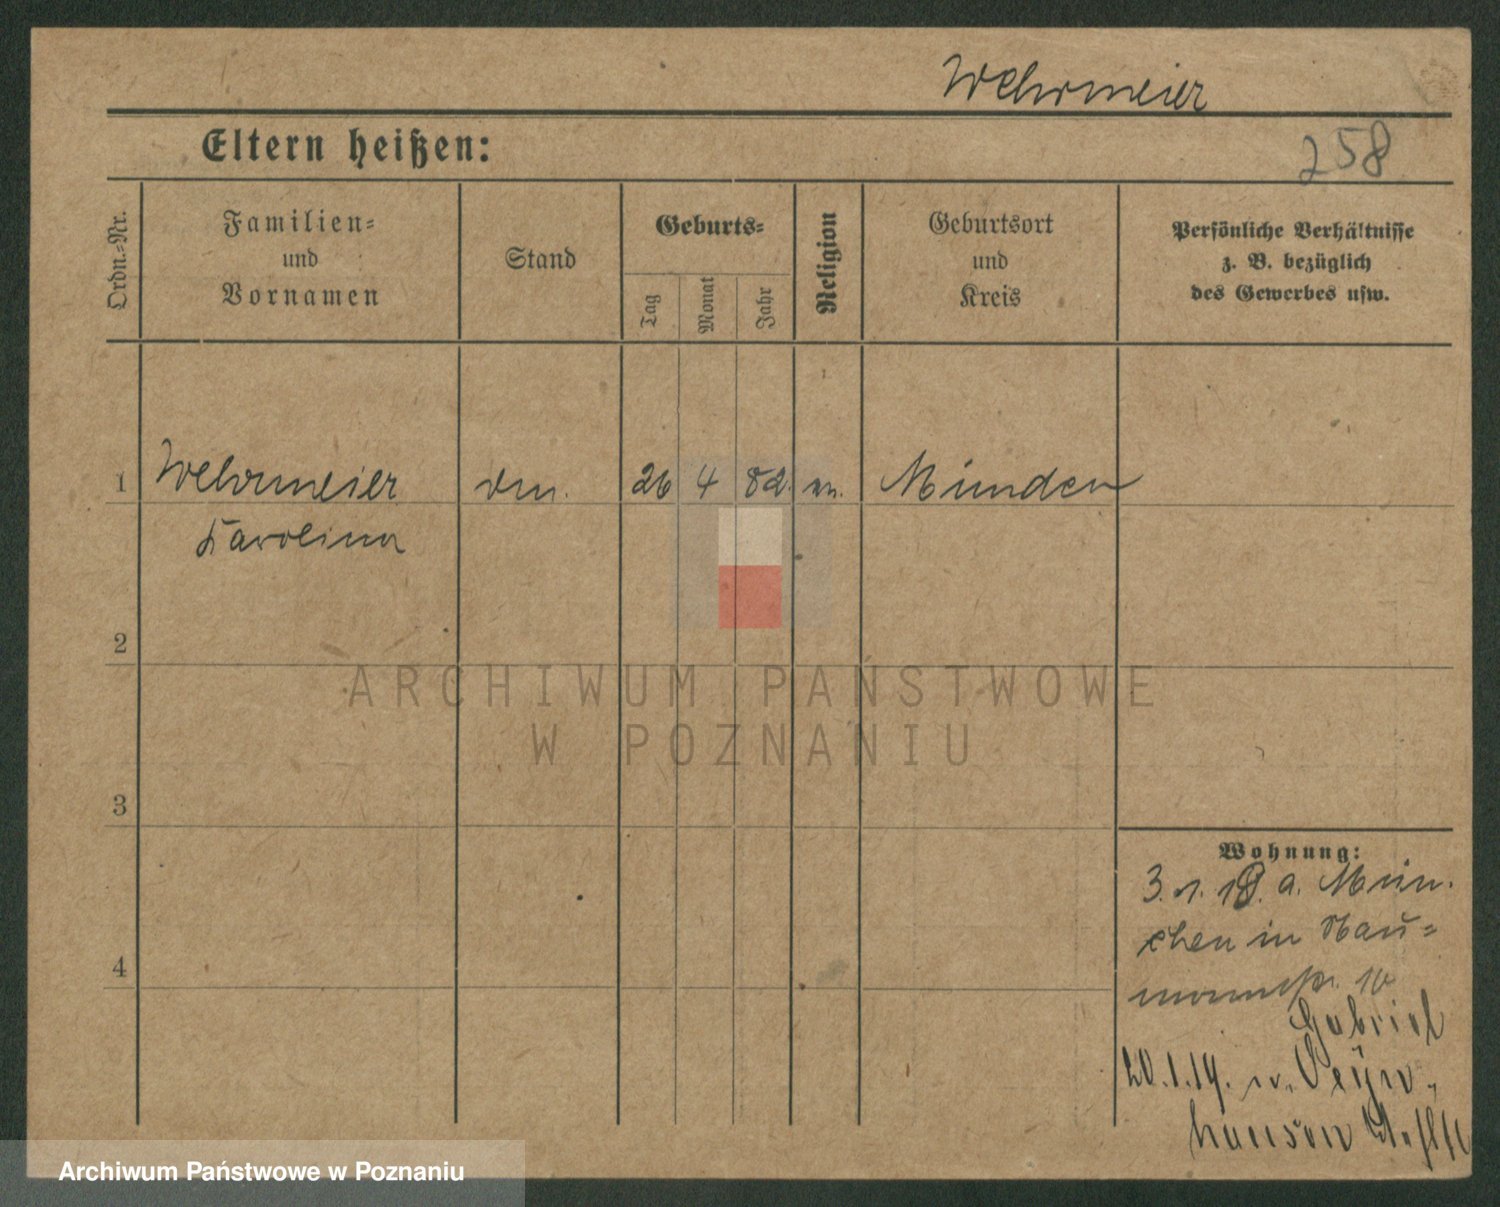 Wehrmeier
Eltern heißen:
258
Ordn.-Nr.
Familien-
und
Vornamen
Stand
Geburts-
Tag
Monat
Jahr
Religion
Geburtsort
und
Kreis
Persönliche Verhältnisse
z. B. bezüglich
des Gewerbes usw.
1 Wehrmeier 26 4 82. Münden
Karolina
2
3
4
Wohnung:
3. 1. 18. a. Mün-
chen in Nau-
mannstr. 10
Gabriel
20.1.19. n. Oeyn-
hausen
ARCHIWUM PAŃSTWOWE
W POZNANIU
Archiwum Państwowe w Poznaniu